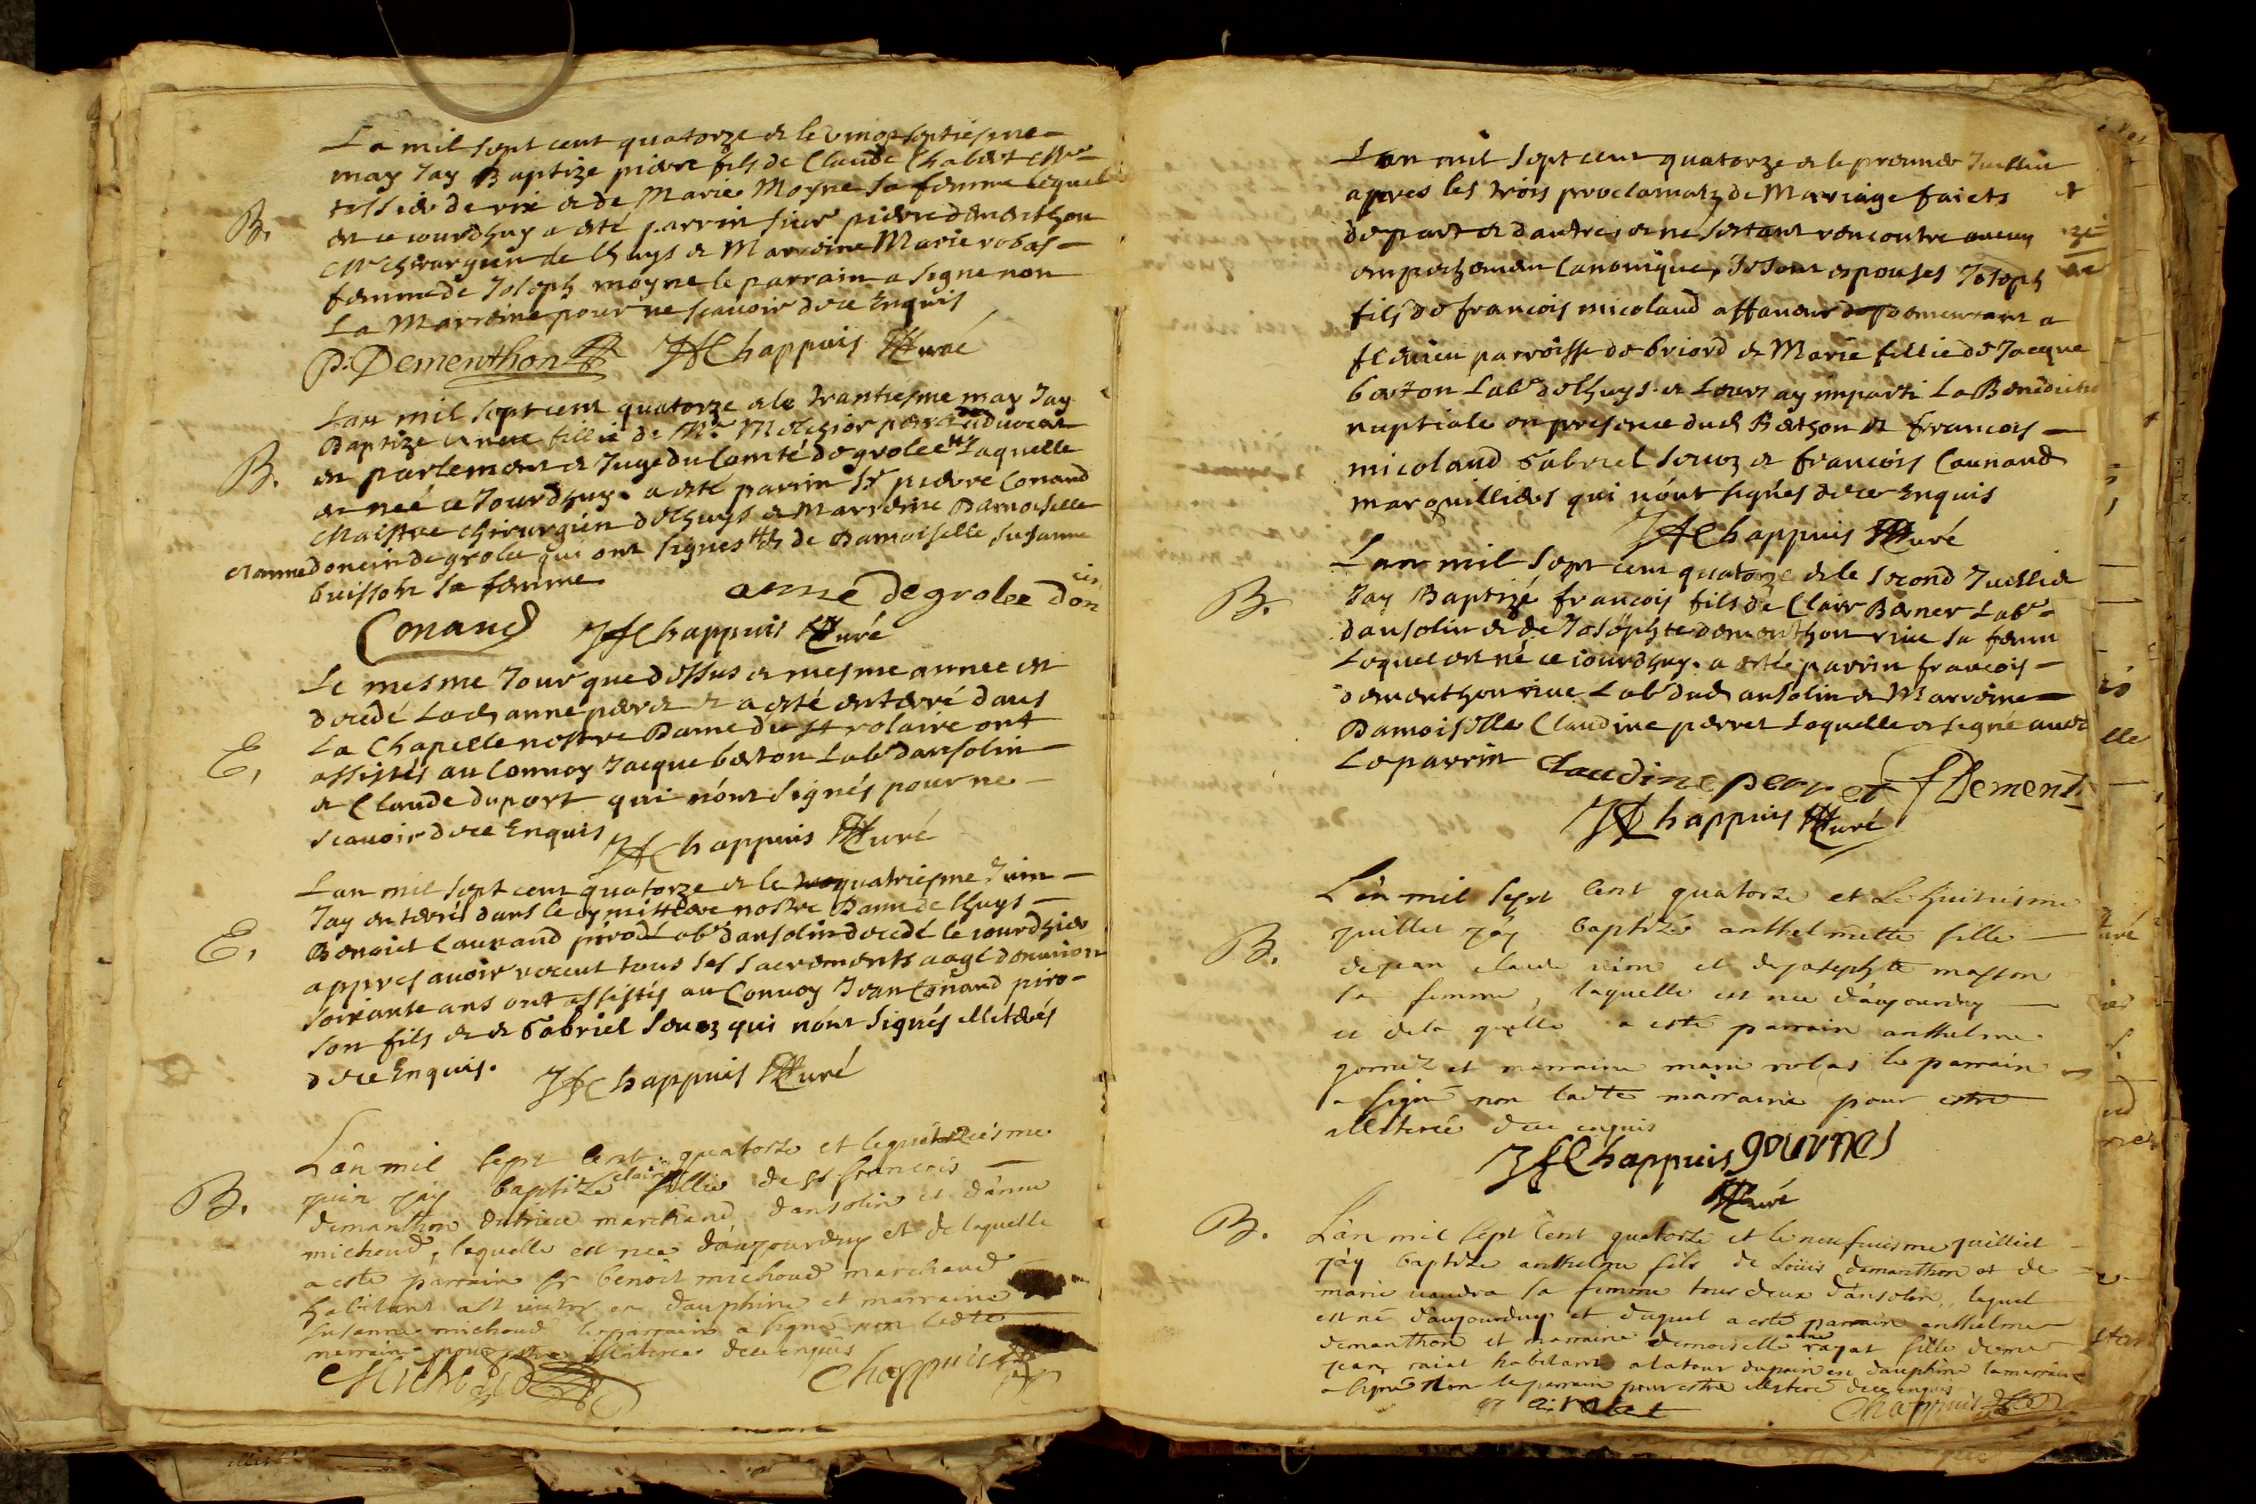 La mil sept cent quatorze & le vingt septiesme
may Jay Baptize piere fils de Claude Chabert Mre
tissier de rix & de Marie Moyne sa femme lequel
B.
est ce jourdhuy a esté parrin sieur piere dementhon
Mre chirurgien de lhuys & Marreine Marie robas
femme de Joseph moyne le parrain a signe non
La Marreine pour ne scavoir de ce Enquis
P. Dementhon JfChappuis Curé
Lan mil sept cent quatorze & le trantiesme may Jay
Baptize anne fillie de Mr. Melchior Advocat
B.
en parlement & Juge du Comté de grolee Laquelle
est née ce Jourdhuy. a esté parrin Sr piere Conand
Maistre chirurgien de lhuys & Marreine Damoiselle
anne doncin de grolee qui ont signes & de Damoiselle susanne
buisson sa femme
anne de grolee don
cin
Conand JfChappuis Curé
Le mesme Jour que dessus & mesme annee est
decedé Lad anne & a esté enterré dans
La Chapelle nostre Dame du st rolaire ont
E.
assistés au Convoy Jacque berton Labr dansolin
& Claude duport qui nónt signés pour ne
scavoir de ce Enquis JfChappuis Curé
Lan mil sept cent quatorze & le quatriesme Juin
Jay enterré dans le cymittiere nostre Dame de lhuys
E.
Benoict Caunand Labr dansolin decedé le jourdhier
appres avoir receut tous ses sacrements aagé denviron
soixante ans ont assistés au Convoy Jean Conand piro
son fils & Gabriel Souoz qui nónt signés illiterés
de ce Enquis.
JfChappuis Curé
Lân mil sept Cent quatorze et le quatorziesme
claire
juin jây baptizé fillie de sr francois
B.
demanthon dutrieve marchand dansolin et dánne
michoud, laquelle est née dáujourdhuy et de laquelle
a esté parrain sr benoit michoud marchand
habitant a st en dauphiné et marraine
susanne michoud le parrain a signé non ladte
marraine pour estre illiterée de ce enquis
Michoud Chappuis
Lan mil sept cent quatorze & le premier Juillet
apres les trois proclamats de Mariage faicts
de part & dautres & ne sestant rencontre aucun
empechement Canonique, Jes ont espouses Joseph
fils de francois micoland affaneur demeurant a
flevieu parroisse de briord & Marie fillie de Jacque
berton Labr de lhuys & Leurs ay imparti La Benedicti
nuptiale en presence dud Berthon & francois
micoland Gabriel Souoz & francois Caunand
marguilliers qui nónt signés de ce Enquis
JfChappuis Curé
Lan mil sept cent quatorze & le second Juillet
B.
Jay Baptizé francois fils de Clair Barner Labr
dansolin & de Josephte dementhon rive sa femm
Lequel est né ce jourdhuy. a esté parrin francois
dementhon rive Labr dud ansolin & Marreine
Damoiselle Claudine perret Laquelle a signé avec
Le parrin Claudine perret f Dement
JfChappuis Curé
Lân mil sept Cent quatorze et Le huitiesme
juillet jây baptizé anthelmette fille
B.
de jean claude et de josephte masson
sa femme, laquelle est née daujourdhuy
et de la quelle a esté parrain anthelme
et marraine marie robas le parrain
a signé non ladte marraine pour estre
illiterée de ce enquis
JfChappuis gournes
Curé
B.
Lân mil sept Cent quatorze et le neufuiesme juilliet
jây baptizé anthelme fils de Loüis demanthon et de
marie vaudra sa femme tous deux dánsolin, lequel
est né daujourdhuy et duquel a esté parrain anthelme
anne
demanthon et marraine demoiselle rayat fille de mr
jean raiat habitant a la tour du pain en dauphiné la marraine
a signé Non le parrain pour estre illiteré de ce enquis
Chappuis